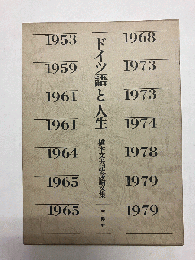 ドイツ語と人生
文集
1953
1959
1961
1961
1964
1965
1965
1968
1973
1973
1974
1978
1979
1979